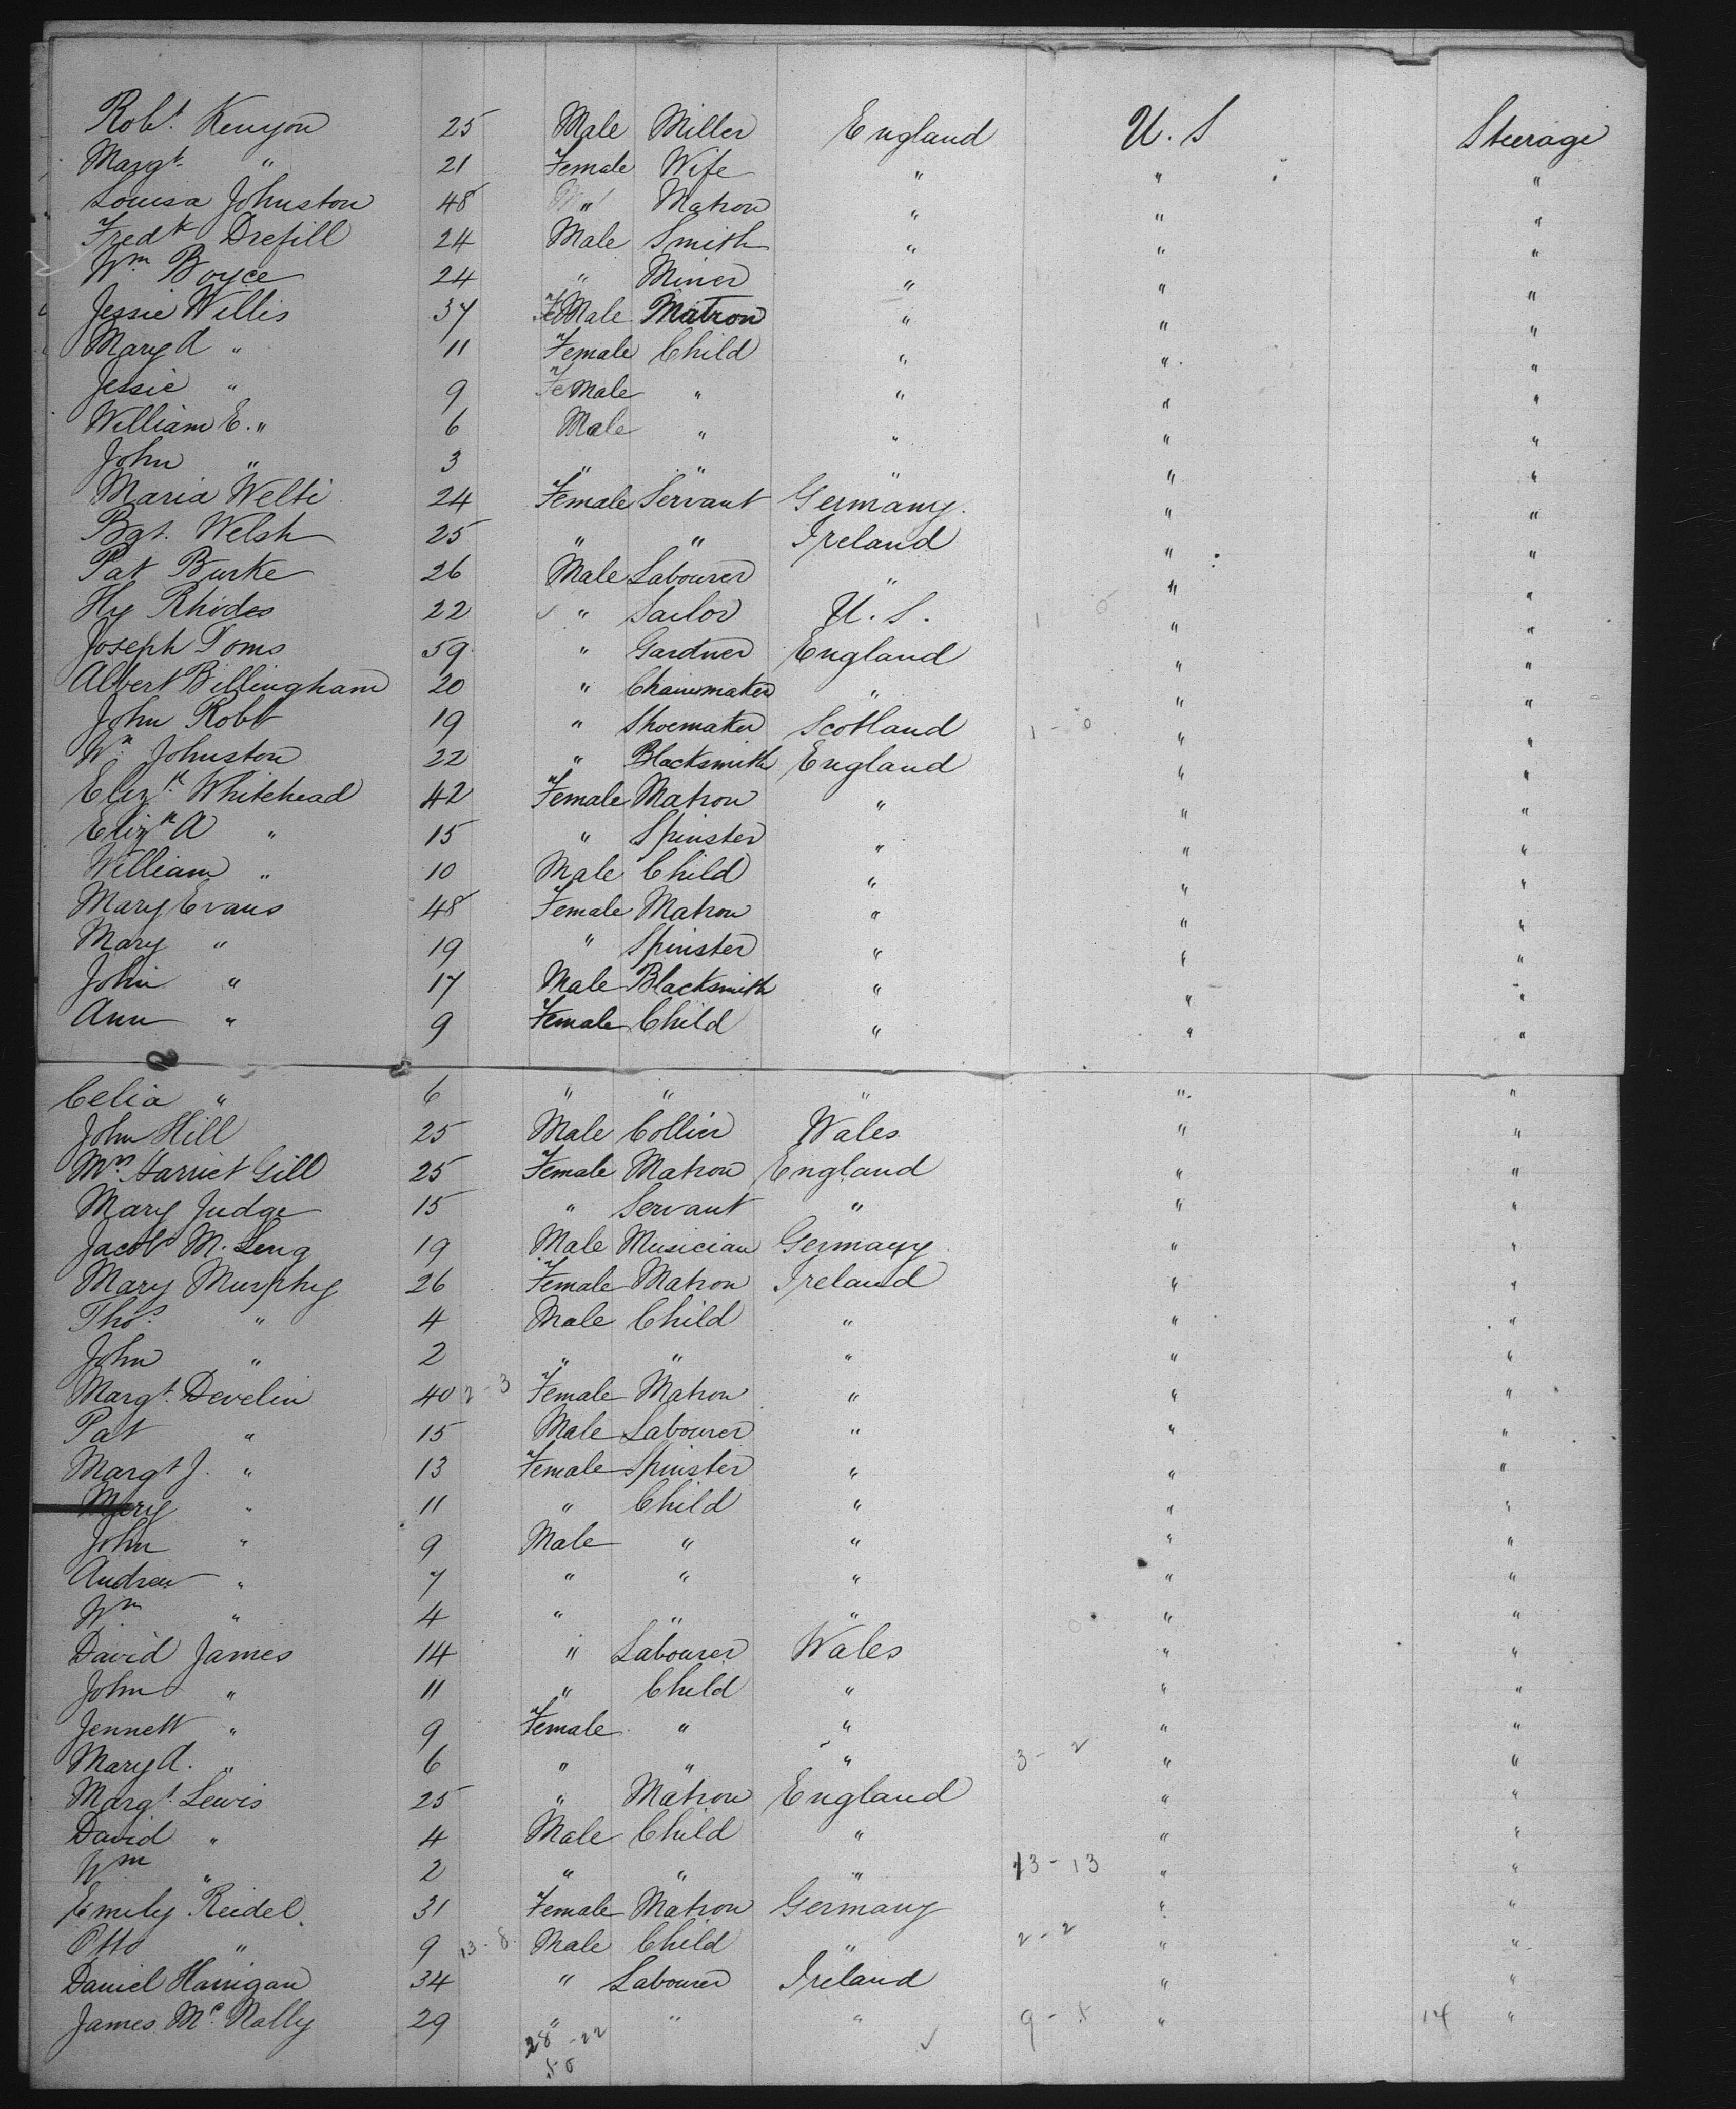 Robt. Kenyon 25 Male Miller England U. S Steerage
Margt. " 21 Female Wife " " "
Louisa Johnston 48 " Matron " " "
Fredk Drefill 24 Male Smith " " "
Wm Boyce 24 " Miner " " "
Jessie Willis 37 FeMale Matron " " "
Mary A " 11 Female Child " " "
Jessie " 9 FeMale " " " "
William E. " 6 Male " " " "
John " 3 " " " " "
Maria Welti 24 Female Servant Germany. " "
Bgt. Welsh 25 " " Ireland " "
Pat Burke 26 Male Labourer " " "
Hy Rhodes 22 " Sailor U. S. " "
Joseph Toms 59 " Gardner England " "
Albert Billingham 20 " Chainmaker " " "
John Robb 19 " Shoemaker Scotland 1 - 0 " "
Wm. Johnston 22 " Blacksmith England " "
Elizh Whitehead 42 Female Matron " " "
Elizh A " 15 " Spinster " " "
William " 10 Male Child " " "
Mary Evans 48 Female Matron " " "
Mary " 19 " Spinster " " "
John " 17 Male Blacksmith " " "
Ann " 9 Female Child " " "
Celia " 6 " " " " "
John Hill 25 Male Collier Wales " "
Mrs. Harriet Gill 25 Female Matron England " "
Mary Judge 15 " Servant " " "
Jacob M. Leng 19 Male Musician Germany " "
Mary Murphy 26 Female Matron Ireland " "
Thos. " 4 Male Child " " "
John " 2 " " " " "
Margt. Develin 40 2 - 3 Female Matron " " "
Pat " 15 Male Labourer " " "
Margt J. " 13 Female Spinster " " "
Mary " 11 " Child " " "
John " 9 Male " " " "
Andrew " 7 " " " " "
Wm " 4 " " " " "
David James 14 " Labourer Wales " "
John " 11 " Child " " "
Jennett " 9 Female " " " "
Mary A. " 6 " " " 3 - 2 " "
Margt. Lewis 25 " Matron England " "
David " 4 Male Child " " "
Wm " 2 " " " 13 - 13 " "
Emily Reidel. 31 Female Matron Germany " "
Otto " 9 13 - 8. Male Child " 2 - 2 " "
Daniel Harrigan 34 " Labourer Ireland " "
James Mc. Nally 29 " " " 9 - 5 " 14 "
28 - 22
50